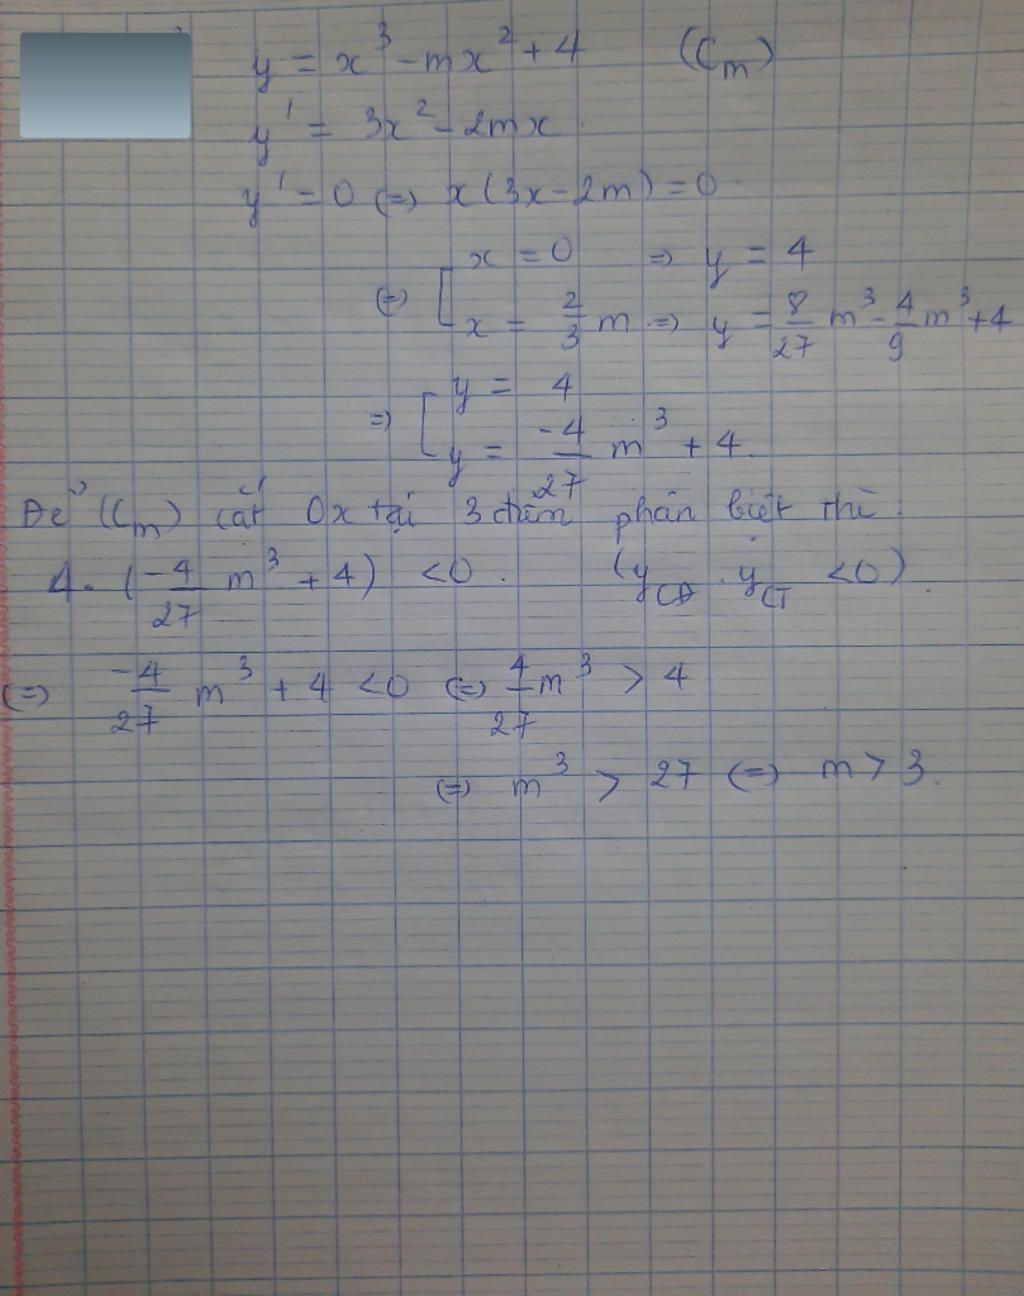 y = x³ - mx² + 4 (Cm)
y' = 3x² - 2mx
y' = 0 (=) x(3x - 2m) = 0
x = 0 => y = 4
(=) [ x = 2/3 m => y = 8/27 m³ - 4/9 m³ + 4
y = 4
=> [ y = -4/27 m³ + 4.
Để (Cm) cắt Ox tại 3 điểm phân biệt thì.
4. (-4/27 m³ + 4) < 0. (yCĐ . yCT < 0).
(=) -4/27 m³ + 4 < 0 (=) 4/27 m³ > 4
(=) m³ > 27 (=) m > 3.